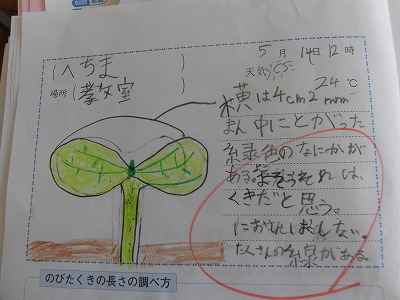 (へちま)
場所(教室)
5月14日12時
天気
24℃
横は4cm2mm
まん中にとがった
緑色のなにかが
ある。それは、
くきだと思う。
においはしない。
たくさんの線がある。
のびたくきの長さの調べ方